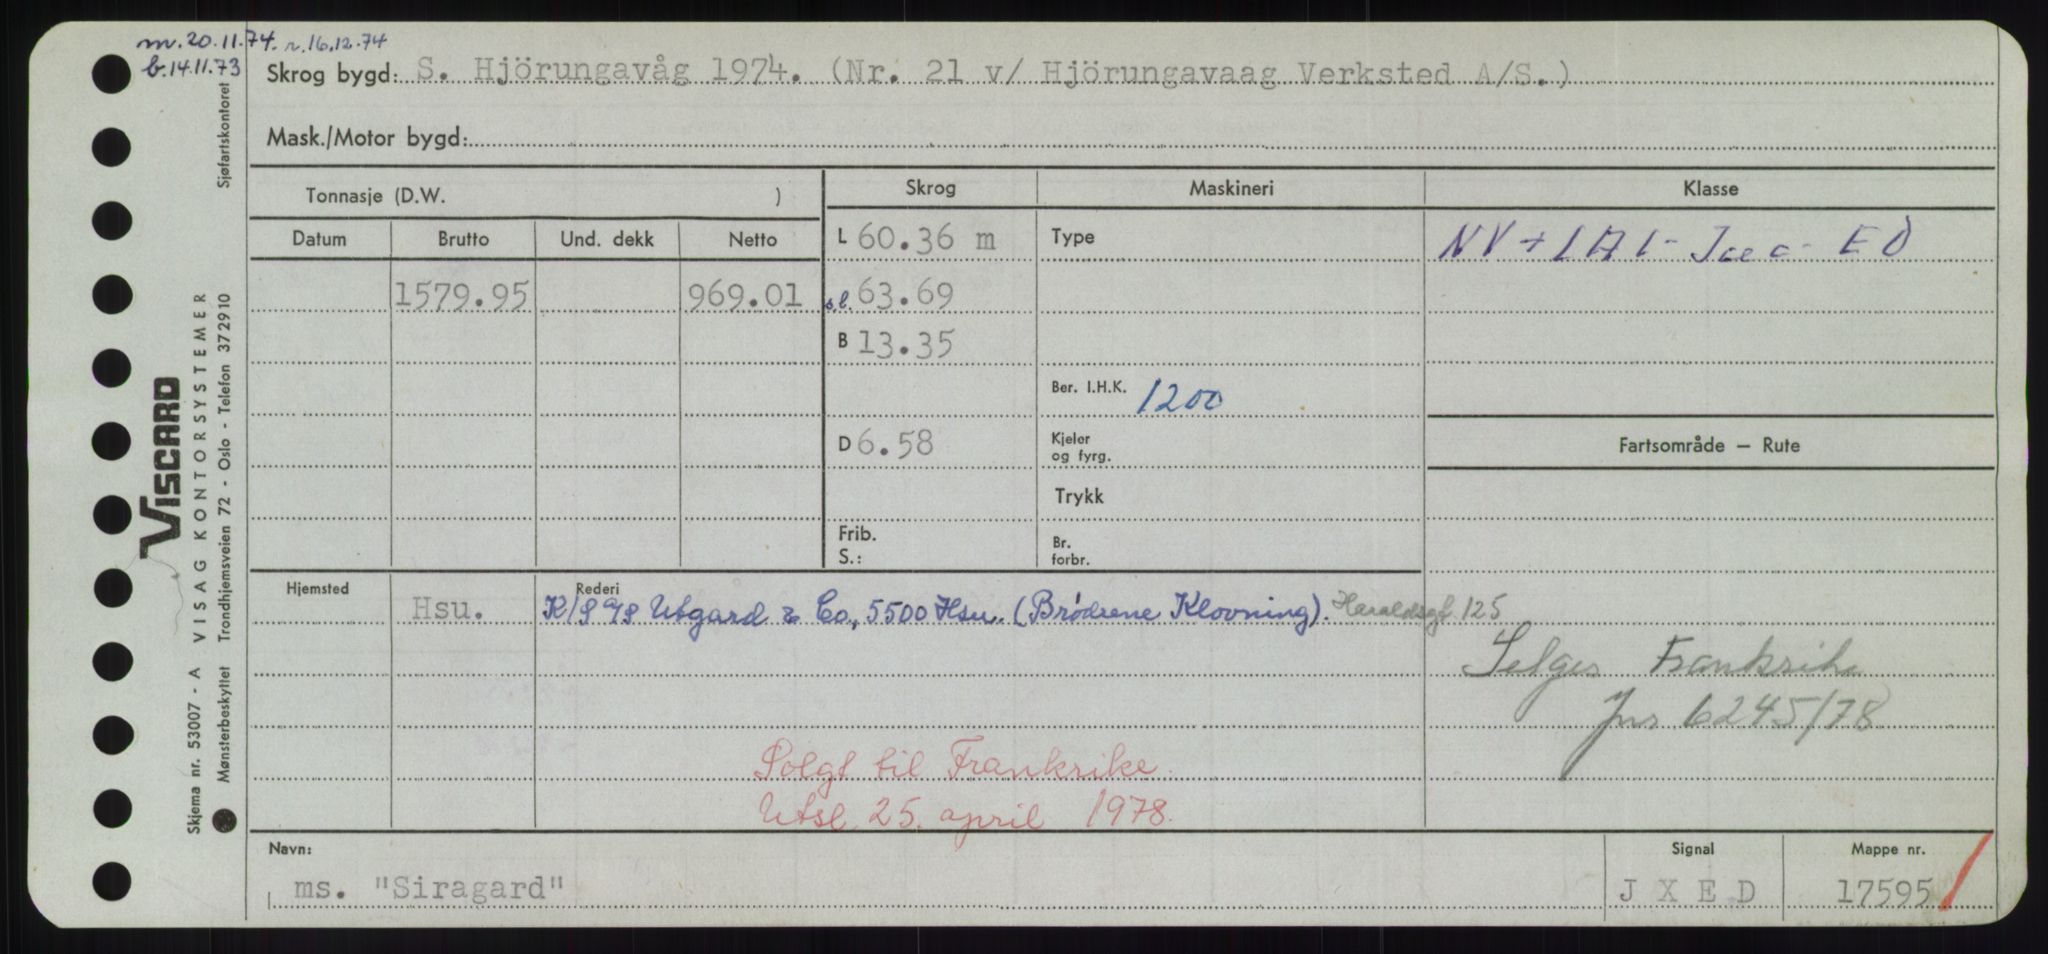 m. 20.11.74. r. 16.12.74
b. 14.11.73
Skrog bygd: S. Hjörungavåg 1974. (Nr. 21 v/ Hjörungavaag Verksted A/S.)
Mask./Motor bygd:
Tonnasje (D.W. )
Skrog
Maskineri
Klasse
Datum
Brutto
Und. dekk
Netto
L 60.36 m
Type
NV + 1A1 - Ice C - E0
1579.95
969.01
s.l. 63.69
B 13.35
Ber. I.H.K. 1200
D 6.58
Kjeler
og fyrg.
Fartsområde — Rute
Trykk
Frib.
S.:
Br.
forbr.
Hjemsted
Hsu.
Rederi
K/S A/S Utgard & Co., 5500 Hsu. (Brødrene Klovning). Haraldsgt. 125
Selges Frankrike
Jnr 6245/78
Solgt til Frankrike.
Utsl. 25. april 1978.
Navn:
ms. "Siragard"
Signal
J X E D
Mappe nr.
17595
Sjøfartskontoret
VISCARD
VISAG KONTORSYSTEMER
Trondhjemsveien 72 - Oslo - Telefon 372910
Skjema nr. 53007 - A
Mønsterbeskyttet